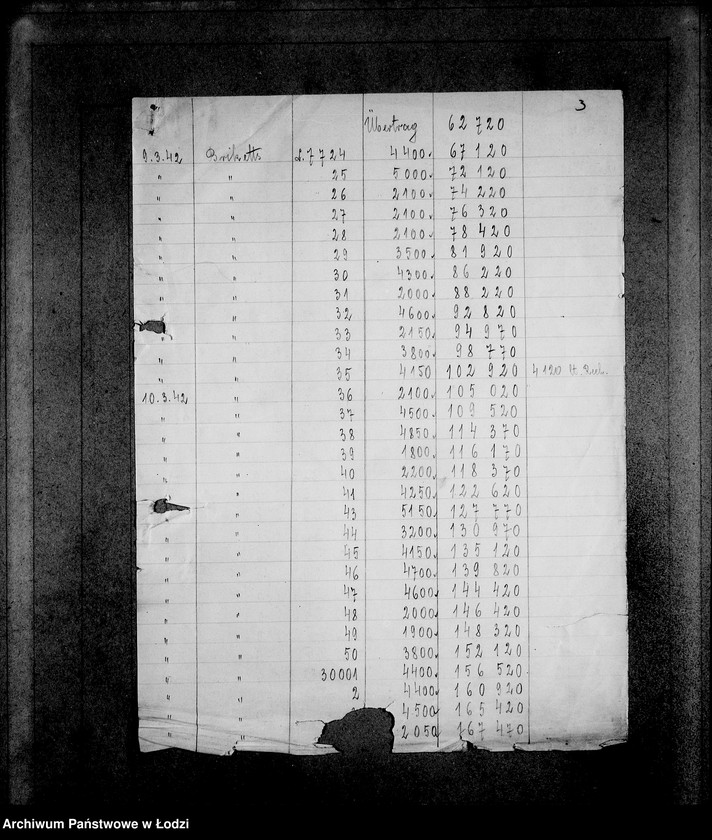 3
Übertrag 62 720
9.3.42 Briketts L.7724 4400. 67 120
" " 25 5000. 72 120
" " 26 2100. 74 220
" " 27 2100. 76 320
" " 28 2100. 78 420
" " 29 3500. 81 920
" " 30 4300. 86 220
" " 31 2000. 88 220
" " 32 4600. 92 820
" " 33 2150. 94 970
" " 34 3800. 98 770
" " 35 4150 102 920 4120 lt.
10.3.42 " 36 2100. 105 020
" " 37 4500. 109 520
" " 38 4850. 114 370
" " 39 1800. 116 170
" " 40 2200. 118 370
" " 41 4250. 122 620
" " 43 5150. 127 770
" " 44 3200. 130 970
" " 45 4150. 135 120
" " 46 4700. 139 820
" " 47 4600. 144 420
" " 48 2000. 146 420
" " 49 1900. 148 320
" " 50 3800. 152 120
" " 30001 4400. 156 520
" " 2 4400. 160 920
" " 4500 165 420
" " 2050 167 470
Archiwum Państwowe w Łodzi